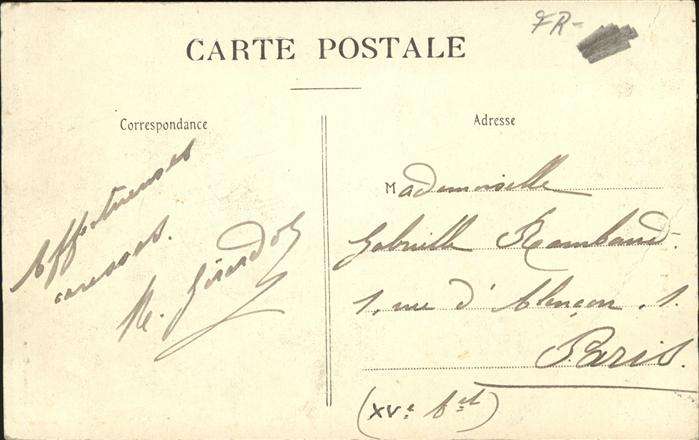 FR-
CARTE POSTALE
Correspondance
Affectueuses
caresses.
Adresse
Mademoiselle
Gabrielle Rambaud.
1, rue d'Alençon, 1.
Paris.
(XVe